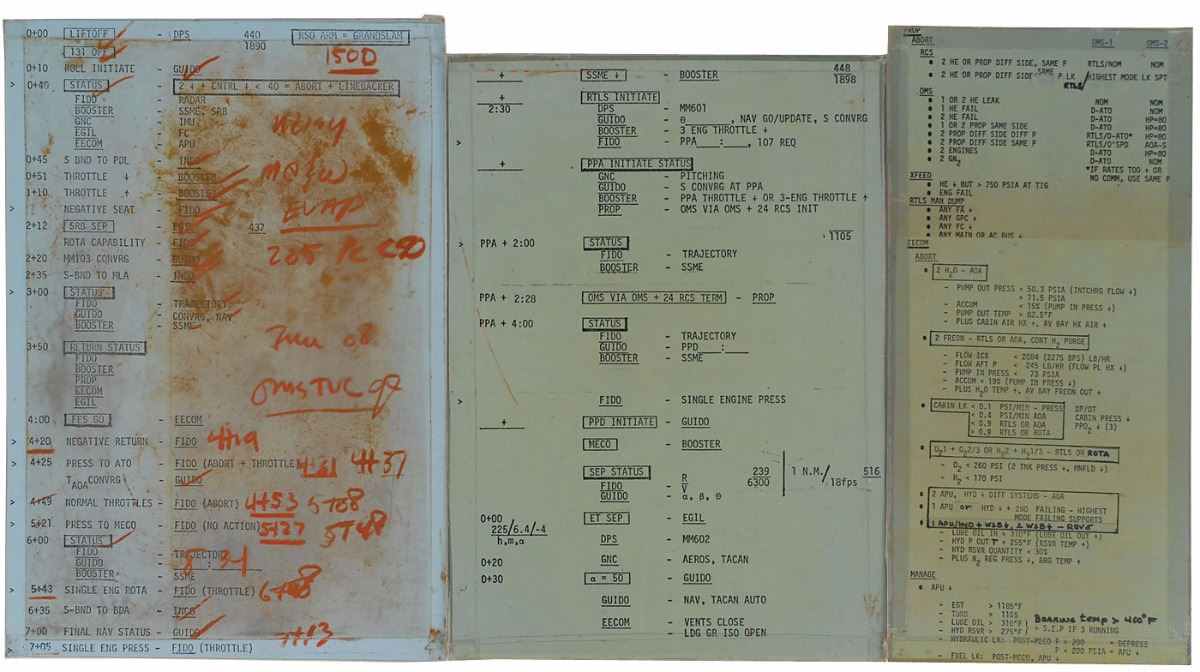 0+00 LIFTOFF - DPS 440 RSO ARM = GRANDSLAM
1890
131 OFF
1500
0+10 ROLL INITIATE - GUIDO
> 0+40 STATUS - 2 ↓ + CNTRL ↓ < 40 = ABORT + LINEBACKER
FIDO - RADAR
BOOSTER - SSME, SRB
GNC - IMU
EGIL - FC
EECOM - APU
0+45 S BND TO PDL - INCO
0+51 THROTTLE ↓ - BOOSTER
1+10 THROTTLE ↑ - BOOSTER
EVAP
> NEGATIVE SEAT - FIDO
2+12 SRB SEP - EGIL 437
ROTA CAPABILITY - FIDO
205
2+20 MM103 CONVRG - GUIDO
2+35 S-BND TO MLA - INCO
> 3+00 STATUS
FIDO - TRAJECTORY
GUIDO - CONVRG, NAV
BOOSTER - SSME
3+50 RETURN STATUS
FIDO
BOOSTER
PROP
EECOM
EGIL
OMS TVC
4:00 FES GO - EECOM
> 4+20 NEGATIVE RETURN - FIDO 4+19
> 4+25 PRESS TO ATO - FIDO (ABORT + THROTTLE) 4+31 4+37
TAOA CONVRG - GUIDO
> 4+49 NORMAL THROTTLES - FIDO (ABORT) 4+53 5+08
> 5+21 PRESS TO MECO - FIDO (NO ACTION) 5+27 5+48
6+00 STATUS
FIDO - TRAJECTORY
GUIDO 8:31
BOOSTER - SSME
> 5+43 SINGLE ENG ROTA - FIDO (THROTTLE) 6+08
6+35 S-BND TO BDA - INCO
7+00 FINAL NAV STATUS - GUIDO 7+13
> 7+05 SINGLE ENG PRESS - FIDO (THROTTLE)
+ SSME ↓ - BOOSTER 448
1898
+ RTLS INITIATE
2:30 DPS - MM601
GUIDO - θ______, NAV GO/UPDATE, S CONVRG
BOOSTER - 3 ENG THROTTLE ↓
> FIDO - PPA___:___, 107 REQ
+ PPA INITIATE STATUS
GNC - PITCHING
GUIDO - S CONVRG AT PPA
BOOSTER - PPA THROTTLE ↓ OR 3-ENG THROTTLE ↑
PROP - OMS VIA OMS + 24 RCS INIT
1105
> PPA + 2:00 STATUS
FIDO - TRAJECTORY
BOOSTER - SSME
PPA + 2:28 OMS VIA OMS + 24 RCS TERM - PROP
PPA + 4:00 STATUS
FIDO - TRAJECTORY
GUIDO - PPD ___:___
BOOSTER - SSME
> FIDO - SINGLE ENGINE PRESS
+ PPD INITIATE - GUIDO
MECO - BOOSTER
SEP STATUS R 239 1 N.M./ 516
FIDO - V 6300 18fps
GUIDO - α, β, θ
0+00 ET SEP - EGIL
225/6.4/-4
h,m,α DPS - MM602
0+20 GNC - AEROS, TACAN
0+30 α = 50 - GUIDO
GUIDO - NAV, TACAN AUTO
EECOM - VENTS CLOSE
- LDG GR ISO OPEN
PROP
ABORT OMS-1 OMS-2
RCS
• 2 HE OR PROP DIFF SIDE, SAME P RTLS/NOM NOM
• 2 HE OR PROP DIFF SIDE, SAME P LK RTLS/HIGHEST MODE LK SPT
OMS
• 1 OR 2 HE LEAK NOM NOM
• 1 HE FAIL D-ATO NOM
• 2 HE FAIL D-ATO HP=80
• 1 OR 2 PROP SAME SIDE D-ATO HP=80
• 2 PROP DIFF SIDE DIFF P RTLS/D-ATO* HP=80
• 2 PROP DIFF SIDE SAME P RTLS/O'SPD AOA-S
• 2 ENGINES D-ATO HP=80
• 2 GN2 D-ATO NOM
*IF RATES TOO ↓ OR
NO COMM, USE SAME P
XFEED
• HE ↓ BUT > 750 PSIA AT TIG
• ENG FAIL
RTLS MAN DUMP
• ANY FA ↓
• ANY GPC ↓
• ANY FC ↓
• ANY MAIN OR AC BUS ↓
EECOM
ABORT
• 2 H2O - AOA
- PUMP OUT PRESS < 50.3 PSIA (INTCHRG FLOW ↓)
> 71.5 PSIA
- ACCUM < 15% (PUMP IN PRESS ↓)
- PUMP OUT TEMP > 82.5°F
- PLUS CABIN AIR HX ↑, AV BAY HX AIR ↑
• 2 FREON - RTLS OR AOA, CONT H2 PURGE
- FLOW ICX < 2084 (2275 BPS) LB/HR
- FLOW AFT P < 245 LB/HR (FLOW PL HX ↓)
- PUMP IN PRESS < 73 PSIA
- ACCUM < 19% (PUMP IN PRESS ↓)
- PLUS H2O TEMP ↑, AV BAY FREON OUT ↑
• CABIN LK < 0.1 PSI/MIN - PRESS DP/DT
< 0.4 PSI/MIN AOA CABIN PRESS ↓
< 0.9 RTLS OR AOA PPO2 ↓ (3)
> 0.9 RTLS OR ROTA
• O21 + O22/3 OR H2 + H21/3 - RTLS OR ROTA
- O2 < 260 PSI (2 TNK PRESS ↓, MNFLD ↓)
- H2 < 170 PSI
• 2 APU, HYD ↓ DIFF SYSTEMS - AOA
• 1 APU or HYD ↓ + 2ND FAILING - HIGHEST
MODE FAILING SUPPORTS
• 1 APU/HYD + WSB↓, 2 WSB↓ -
- LUBE OIL IN > 310°F (LUBE OIL OUT ↑)
- HYD P OUT T > 255°F (RSVR TEMP ↑)
- HYD RSVR QUANTITY < 30%
- PLUS N2 REG PRESS ↓, BRG TEMP ↑
MANAGE
• APU ↓
- EGT > 1185°F
- TURB > 116%
- LUBE OIL > 310°F BEARING temp > 400°F
- HYD RSVR > 275°F > S.E.P IF 3 RUNNING
- HYDRAULIC LK: POST-MECO P > 200 - DEPRESS
P < 200 PSIA - APU ↓
- FUEL LK: POST-MECO, APU ↓